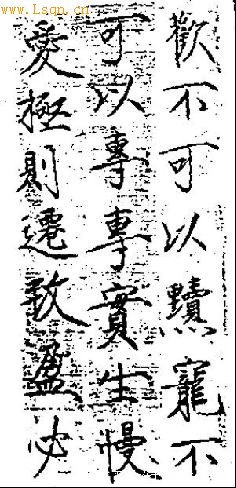 www.Lsqn.cn
歡不可以黷寵不
可以專專實生慢
愛極則遷致盈必